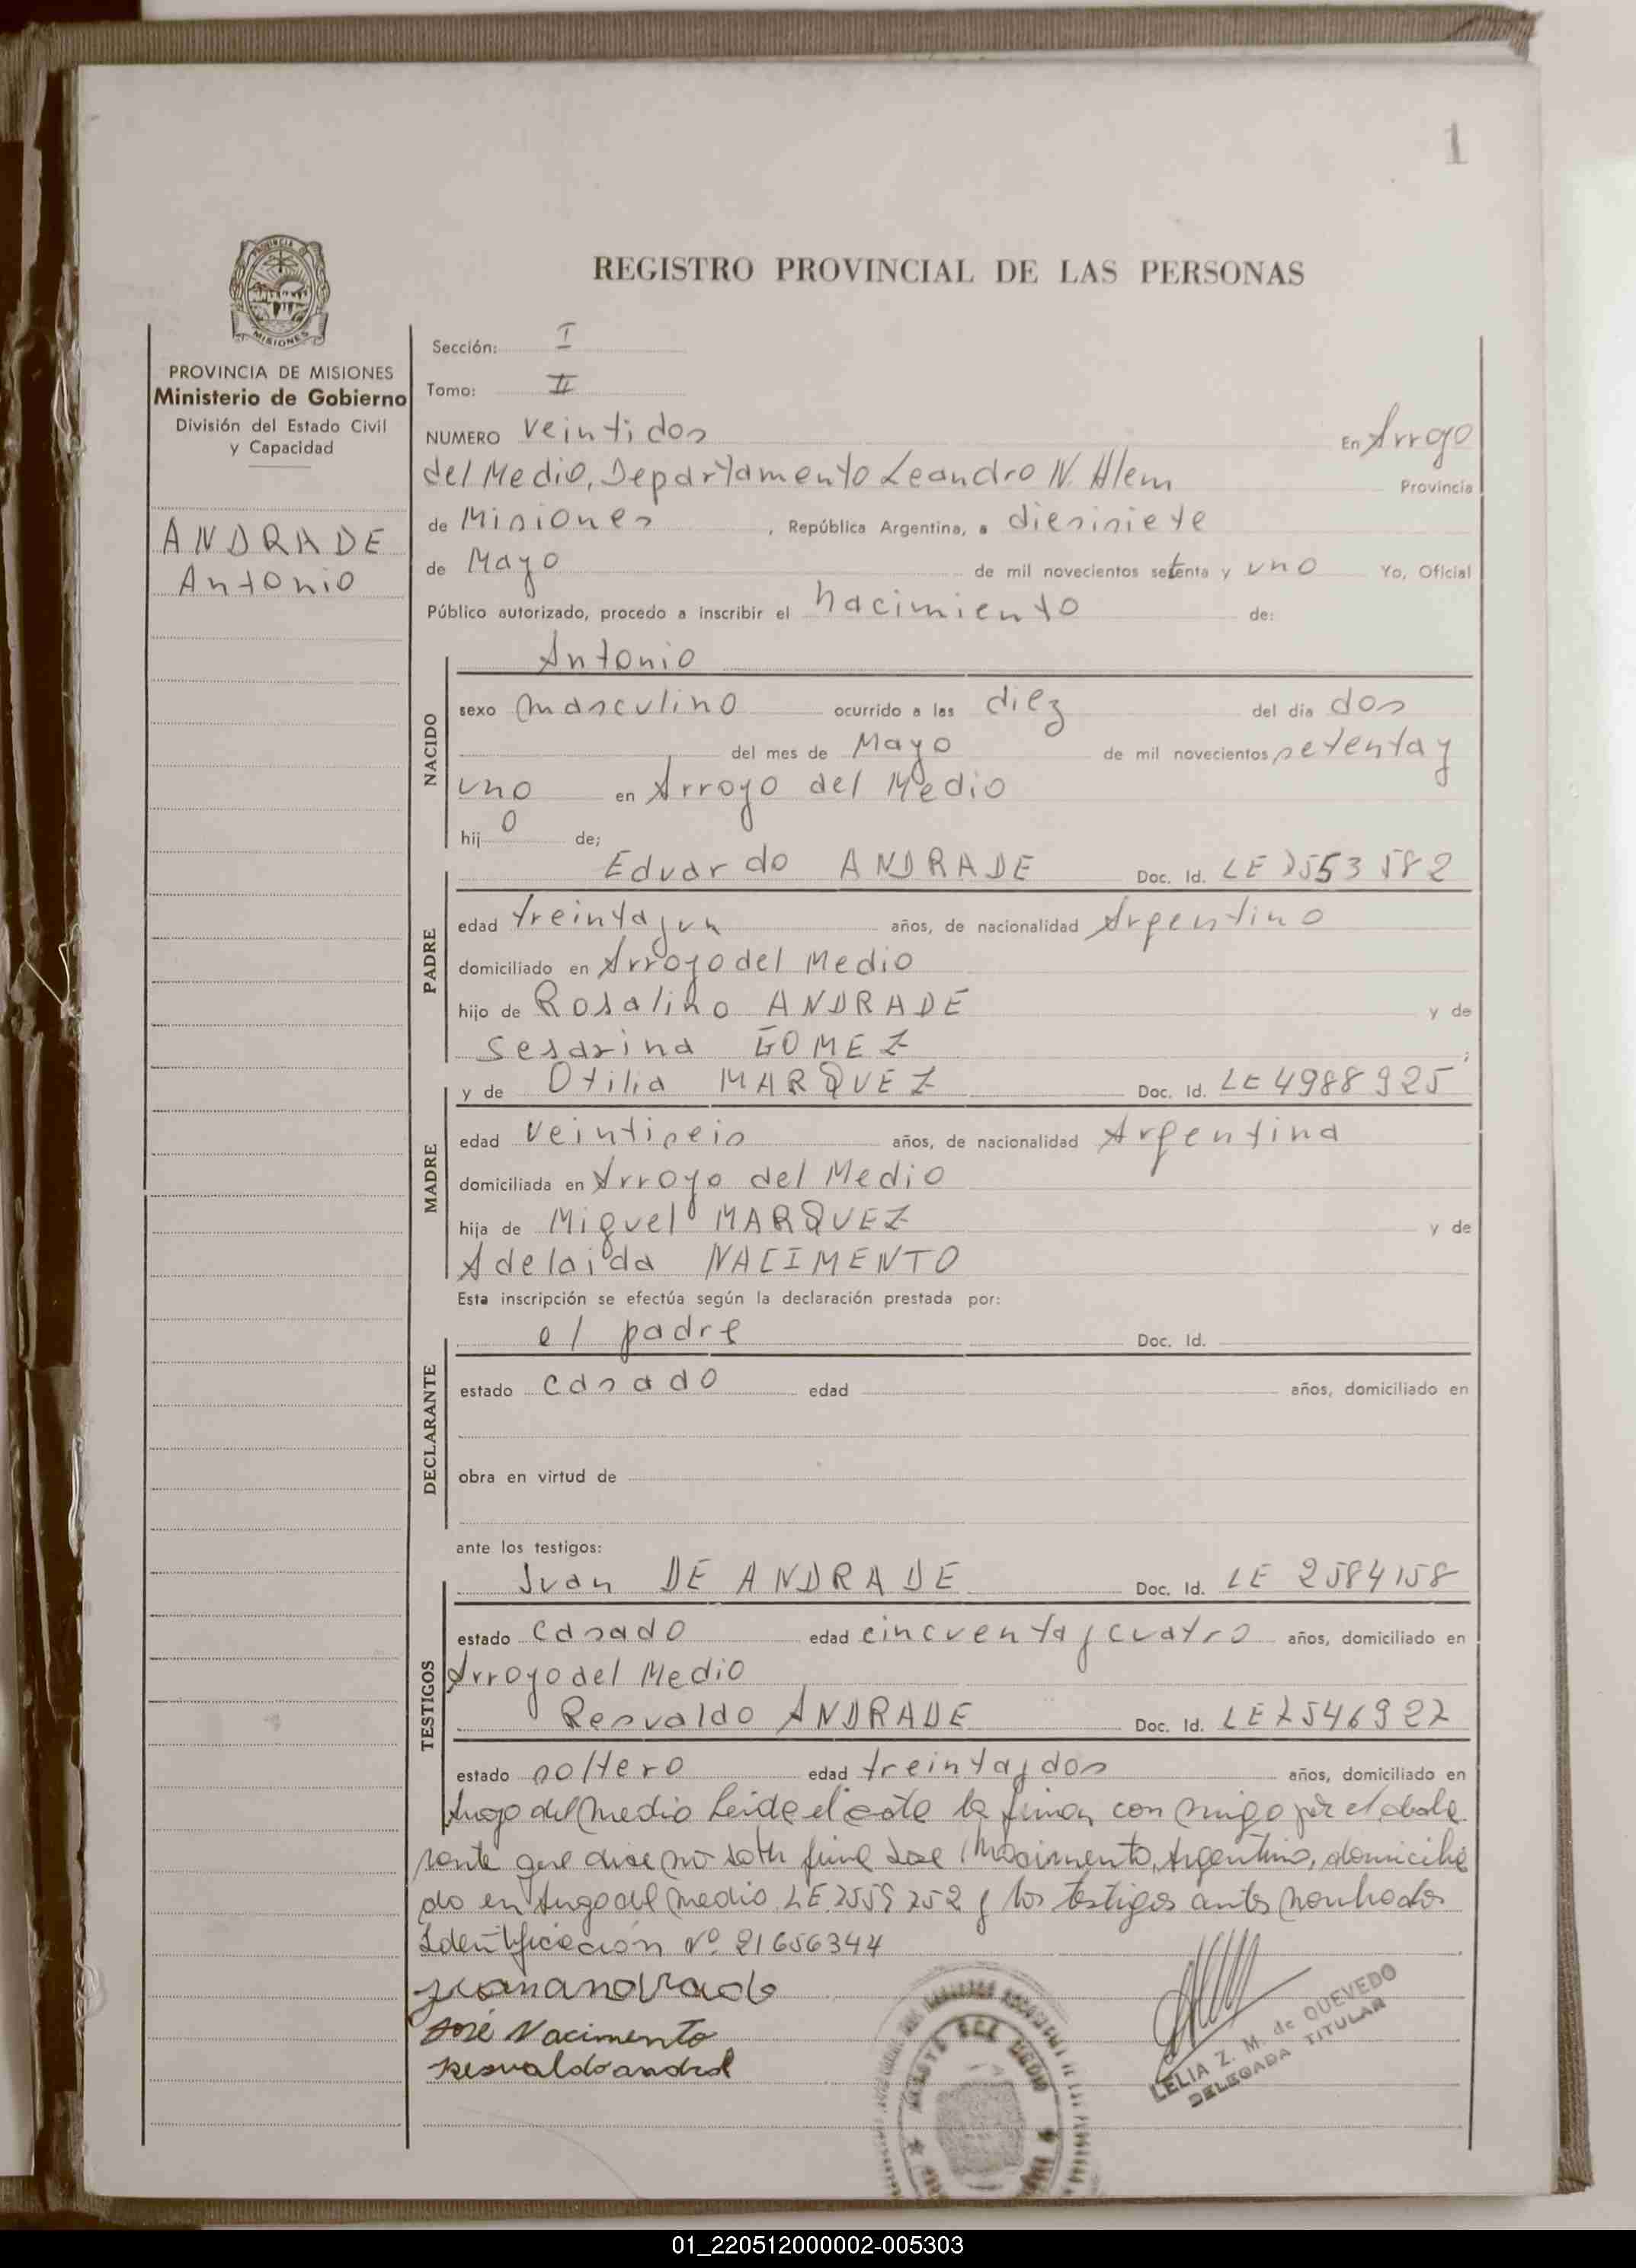 1
PROVINCIA
MISIONES
REGISTRO PROVINCIAL DE LAS PERSONAS
PROVINCIA DE MISIONES
Ministerio de Gobierno
División del Estado Civil
y Capacidad
ANDRADE
Antonio
Sección: I
Tomo: II
NUMERO veintidos En Arroyo
del Medio, Departamento Leandro N. Alem Provincia
de Misiones, República Argentina, a diesisiete
de Mayo de mil novecientos setenta y uno Yo, Oficial
Público autorizado, procedo a inscribir el nacimiento de:
NACIDO
Antonio
sexo masculino ocurrido a las diez del día dos
del mes de Mayo de mil novecientos setenta y
uno en Arroyo del Medio
hijo de;
PADRE
Eduardo ANDRADE Doc. Id. LE 7553582
edad treinta y un años, de nacionalidad Argentino
domiciliado en Arroyo del Medio
hijo de Rosalino ANDRADE y de
Sesarina GOMEZ ;
MADRE
y de Otilia MARQUEZ Doc. Id. LE 4988925
edad veintiseis años, de nacionalidad Argentina
domiciliada en Arroyo del Medio
hija de Miguel MARQUEZ y de
Adelaida NACIMENTO
Esta inscripción se efectúa según la declaración prestada por:
DECLARANTE
el padre Doc. Id.
estado casado edad años, domiciliado en
obra en virtud de
ante los testigos:
TESTIGOS
Juan DE ANDRADE Doc. Id. LE 2584158
estado casado edad cincuenta y cuatro años, domiciliado en
Arroyo del Medio
Resvaldo ANDRADE Doc. Id. LE 7546927
estado soltero edad treinta y dos años, domiciliado en
Arroyo del Medio Leida el acta la firman con migo por el decla
rante que dice no saber firma José Nacimento, Argentino, domicilia
do en Arroyo del Medio LE 7559252 y los testigos antes nombrados
Identificación Nº 21656344
Juan andrade
José Nacimento
Resvaldo andrad
LELIA Z. M. de QUEVEDO
DELEGADA TITULAR
01_220512000002-005303